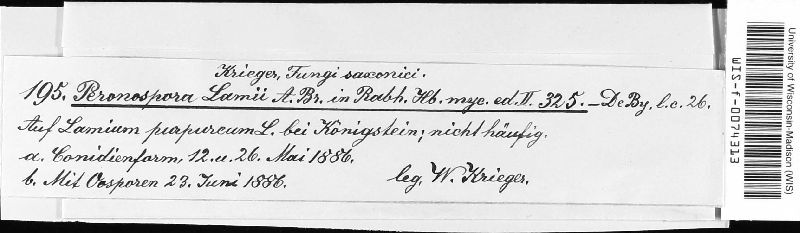 Krieger, Fungi saxonici.
195. Peronospora Lamii A. Br. in Rabh. Hb. myc. ed. II. 325. – De By. l. c. 26.
Auf Lamium purpureum L. bei Königstein; nicht häufig.
a. Conidienform, 12. u. 26. Mai 1886.
b. Mit Oosporen 23. Juni 1886.
leg. W. Krieger.
University of Wisconsin-Madison (WIS)
WIS-f-0074313